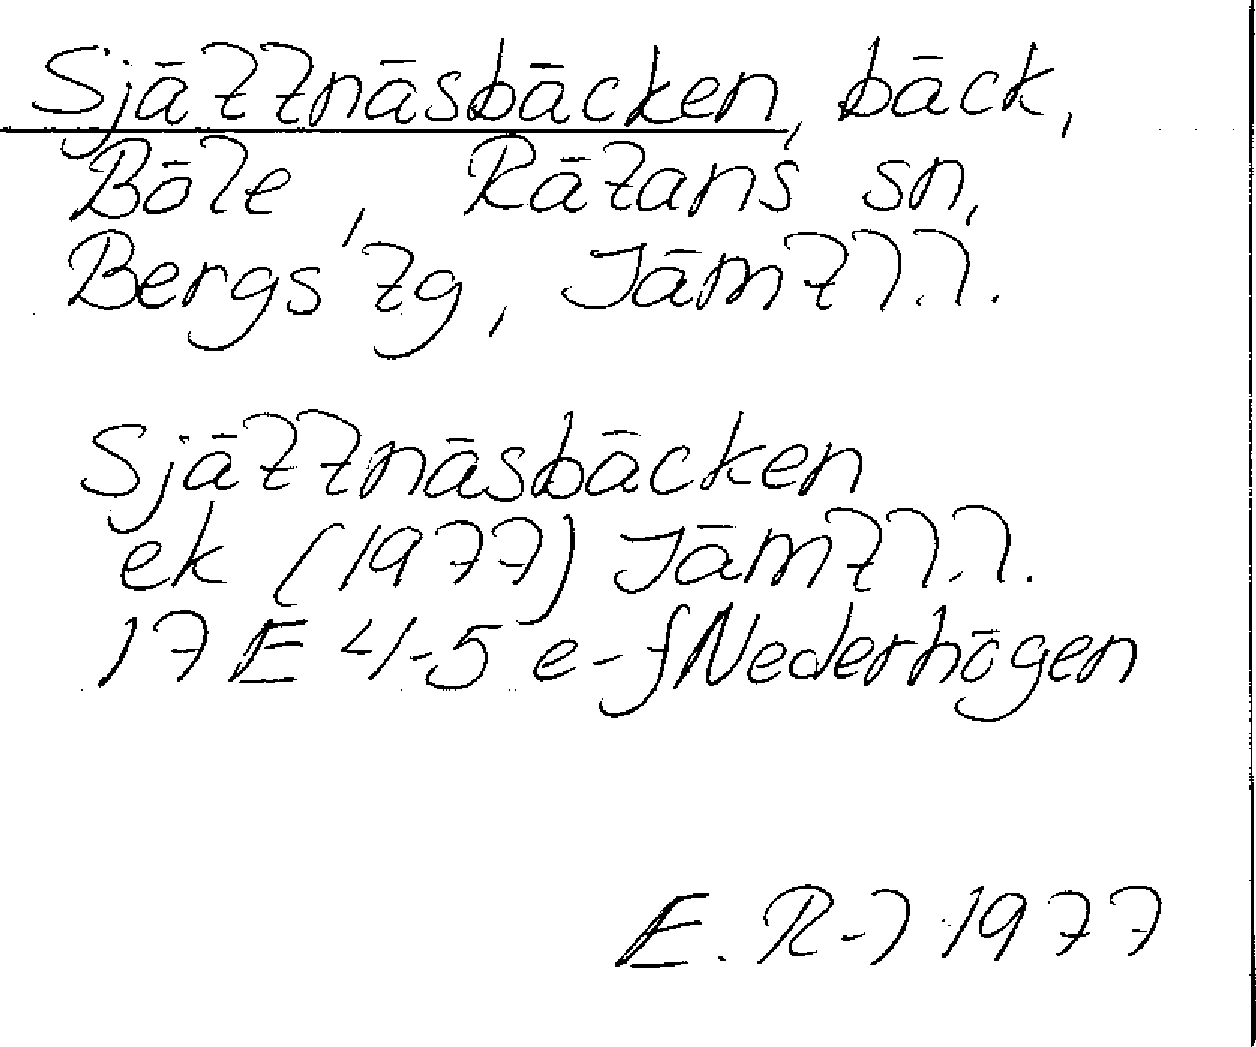 Sjättnäsbäcken, bäck,
Böle, Rätans sn,
Bergs tg, Jämtl.l.
Sjättnäsbäcken
ek (1977) Jämtl.l.
17E 4-5 e-f Nederhögen
E. R-l 1977